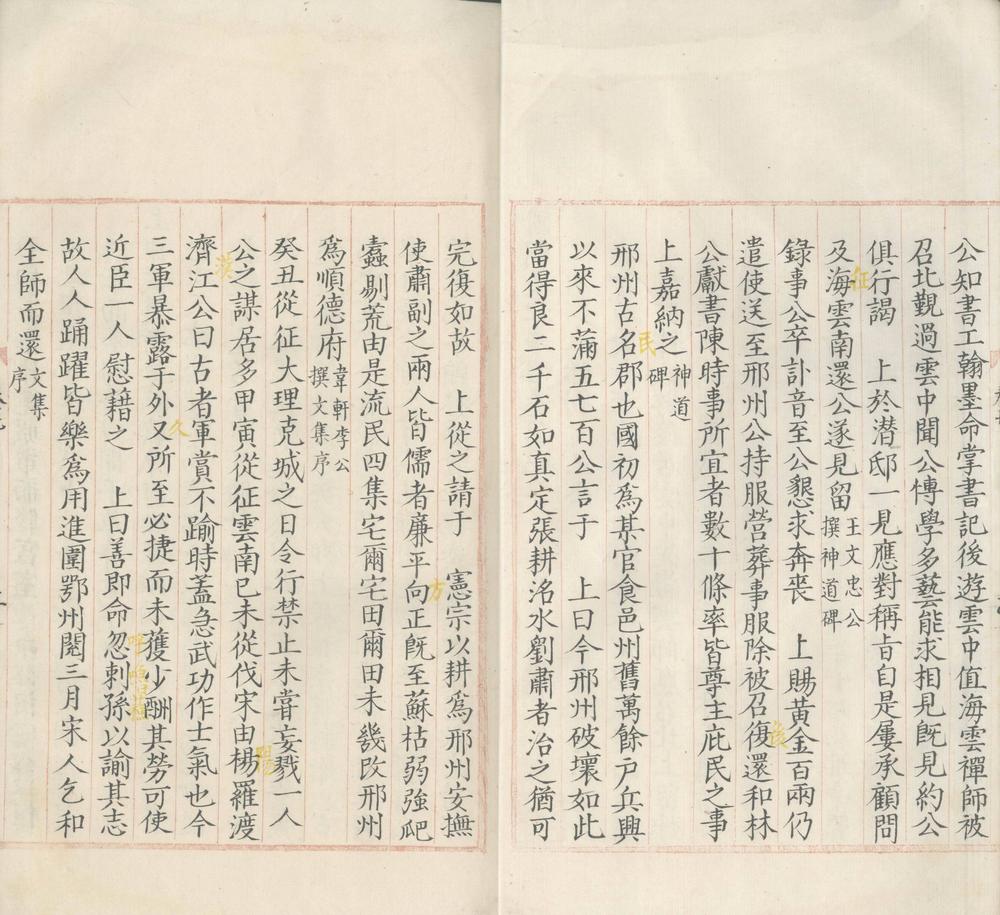 公知書工翰墨命掌書記後遊雲中值海雲禪師被
召北覲過雲中聞公愽學多藝能求相見旣見約公
俱行謁　上於潛邸一見應對稱旨自是屢承顧問
及海雲南還公遂見留王文忠公撰神道碑
錄事公卒訃音至公懇求奔喪　上賜黃金百兩仍
遣使送至邢州公持服營葬事服除被召復還和林
公獻書陳時事所宜者數十條率皆尊主庇民之事
上嘉納之神道碑
邢州古名郡也國初為某官食邑州舊萬餘户兵興
以來不滿五七百公言于　上曰今邢州破壞如此
當得良二千石如真定張耕洺水劉肅者治之猶可
完復如故　上從之請于　憲宗以耕為邢州安撫
使肅副之兩人皆儒者廉平向正旣至蘇枯弱強爬
蠹剔荒由是流民四集宅爾宅田爾田未幾改邢州
為順德府韋軒李公撰文集序
癸丑從征大理克城之日令行禁止未甞妄戮一人
公之謀居多甲寅從征雲南已未從伐宋由楊羅渡
濟江公曰古者軍賞不踰時蓋急武功作士氣也今
三軍暴露于外又所至必捷而未獲少酬其勞可使
近臣一人慰藉之　上曰善即命忽剌孫以諭其志
故人人踊躍皆樂為用進圍鄂州閱三月宋人乞和
全師而還文集序
征
民
後
方
漢
久
陽